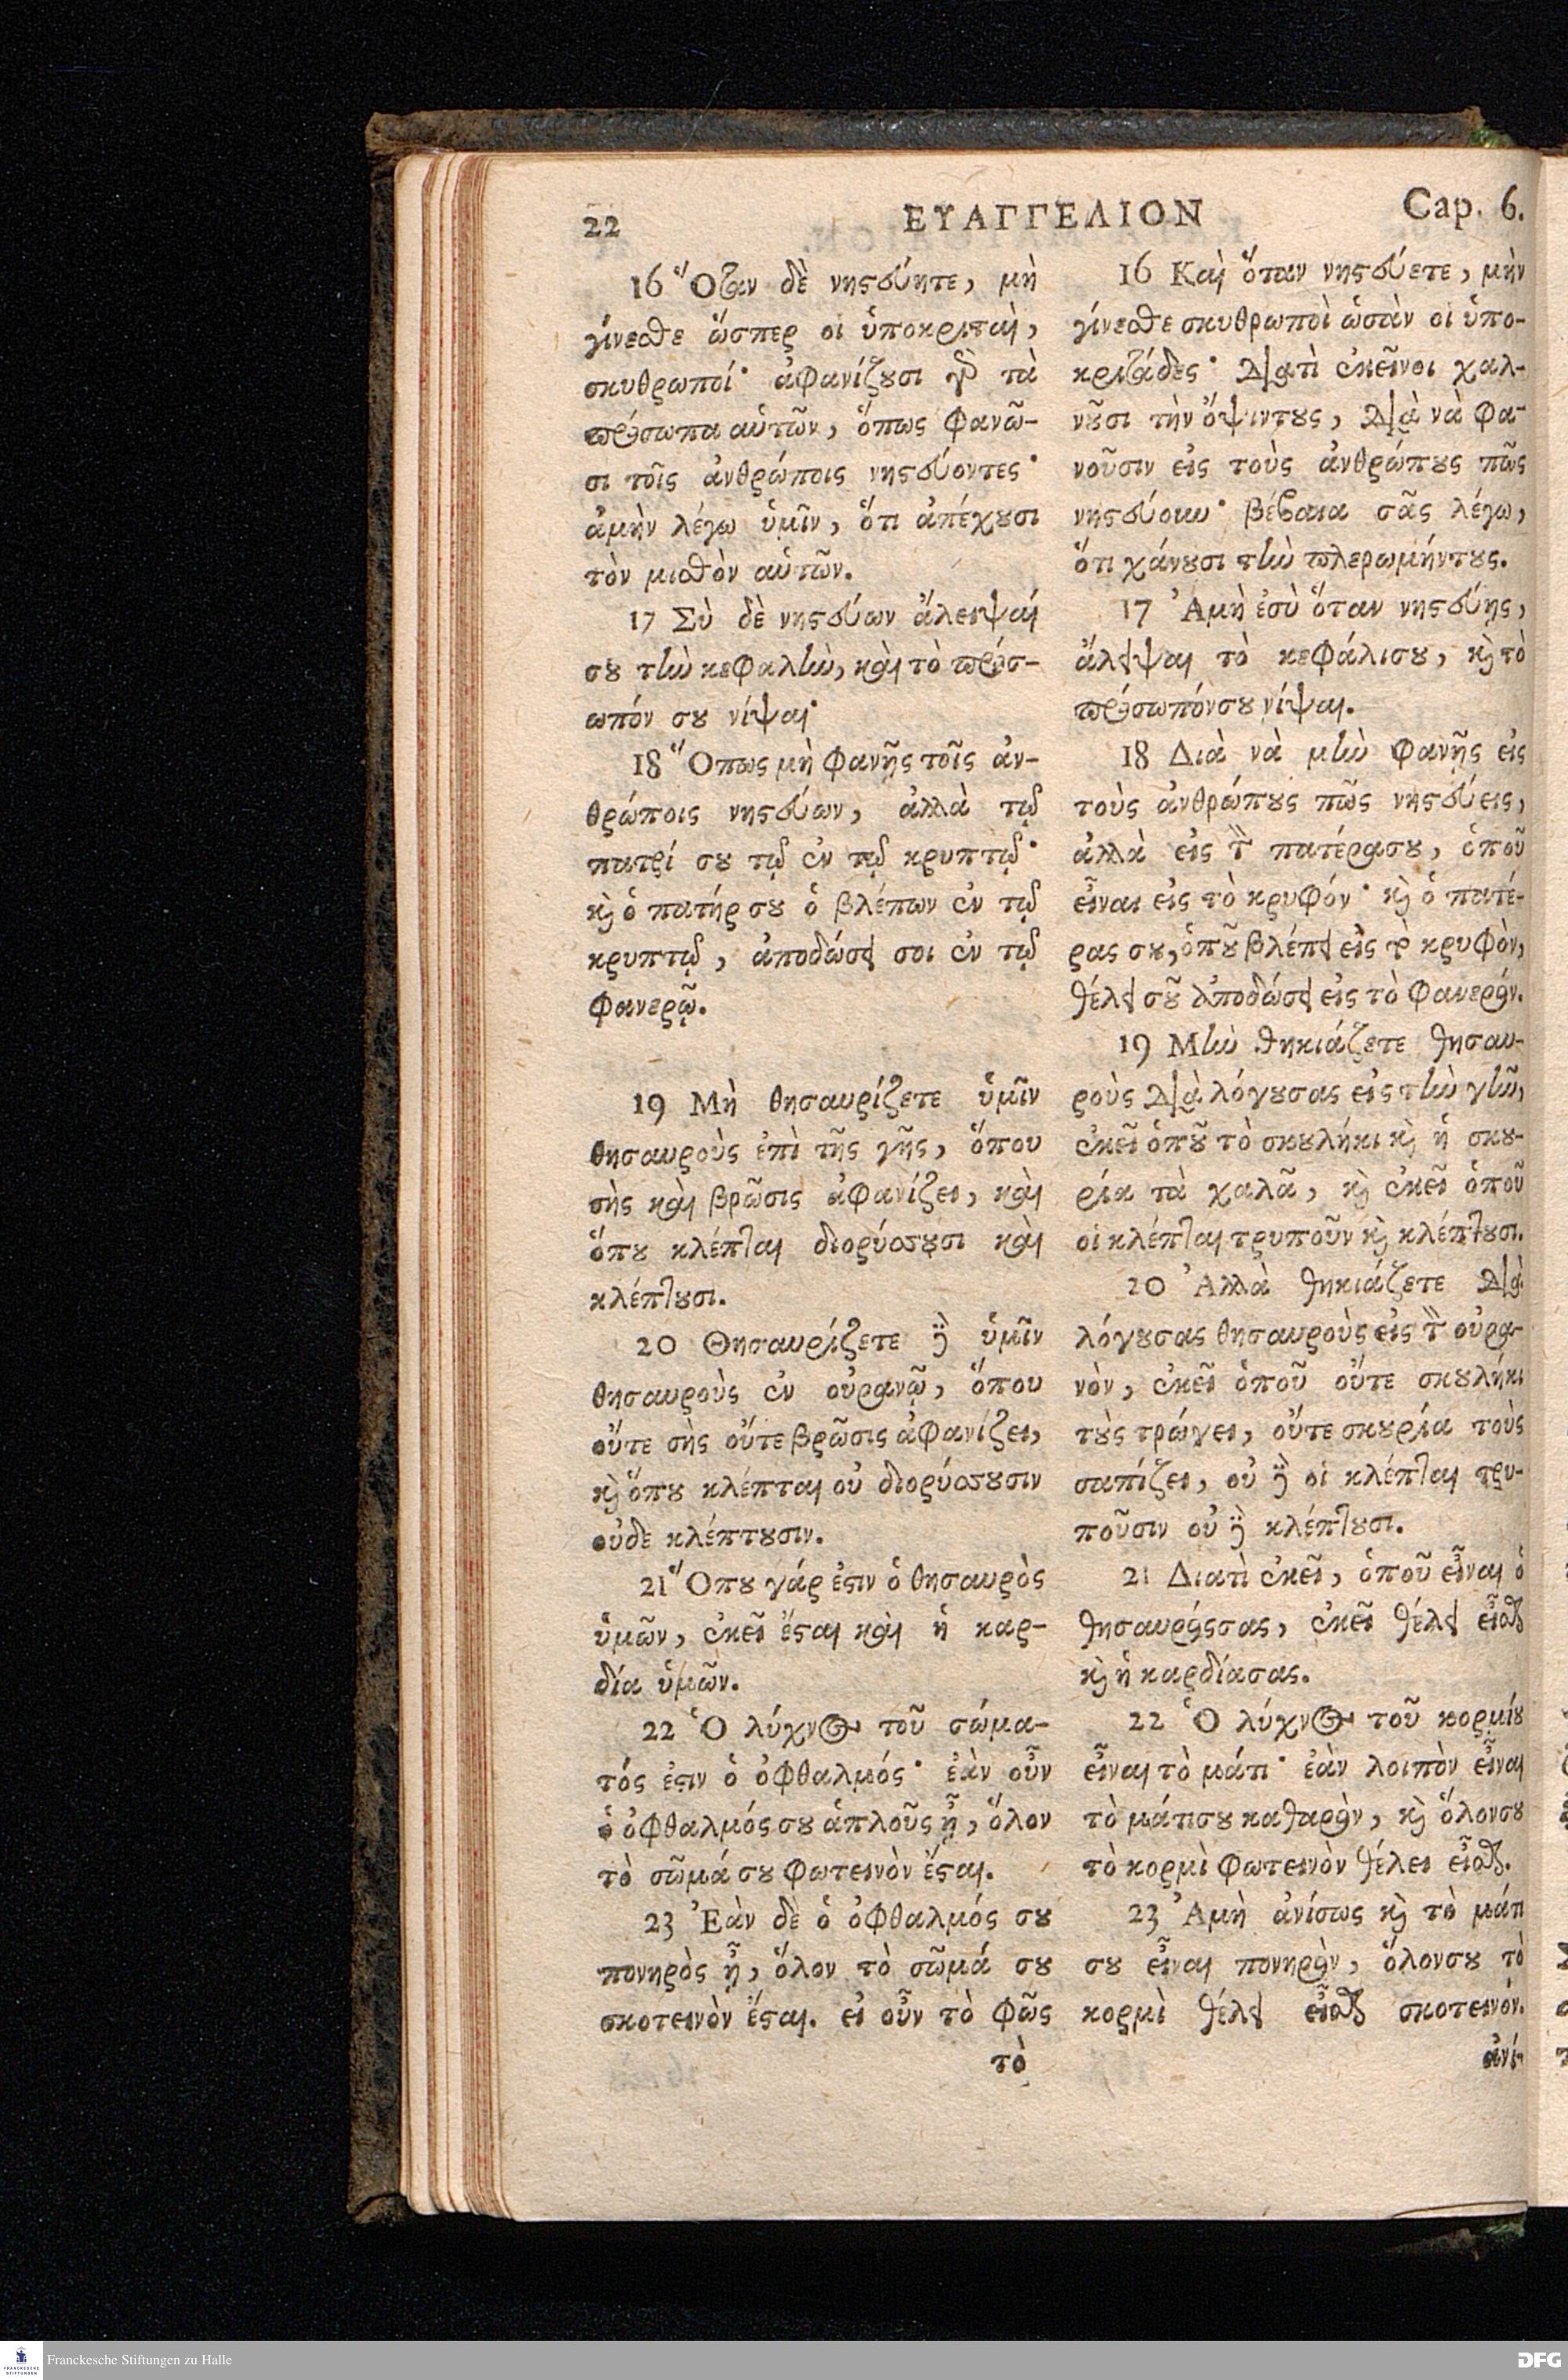 22 ΕΥΑΓΓΕΛΙΟΝ Cap. 6.
16 Ὅταν δὲ νηστεύητε, μὴ
γίνεσθε ὥσπερ οἱ ὑποκριταὶ,
σκυθρωποί· ἀφανίζουσι γὰρ τὰ
πρόσωπα αὑτῶν, ὅπως φανῶ-
σι τοῖς ἀνθρώποις νηστεύοντες·
ἀμὴν λέγω ὑμῖν, ὅτι ἀπέχουσι
τὸν μισθὸν αὑτῶν.
17 Σὺ δὲ νηστεύων ἄλειψαί
σου τὴν κεφαλὴν, καὶ τὸ πρόσ-
ωπόν σου νίψαι·
18 Ὅπως μὴ φανῇς τοῖς ἀν-
θρώποις νηστεύων, ἀλλὰ τῷ
πατρί σου τῷ ἐν τῷ κρυπτῷ·
καὶ ὁ πατήρ σου ὁ βλέπων ἐν τῷ
κρυπτῷ, ἀποδώσει σοι ἐν τῷ
φανερῷ.
19 Μὴ θησαυρίζετε ὑμῖν
θησαυροὺς ἐπὶ τῆς γῆς, ὅπου
σὴς καὶ βρῶσις ἀφανίζει, καὶ
ὅπου κλέπται διορύσσουσι καὶ
κλέπτουσι.
20 Θησαυρίζετε δὲ ὑμῖν
θησαυροὺς ἐν οὐρανῷ, ὅπου
οὔτε σὴς οὔτε βρῶσις ἀφανίζει,
καὶ ὅπου κλέπται οὐ διορύσσουσιν
οὐδε κλέπτουσιν.
21 Ὅπου γάρ ἐστιν ὁ θησαυρὸς
ὑμῶν, ἐκεῖ ἔσται καὶ ἡ καρ-
δία ὑμῶν.
22 Ὁ λύχνος τοῦ σώμα-
τός ἐστιν ὁ ὀφθαλμός· ἐὰν οὖν
ὁ ὀφθαλμός σου ἁπλοῦς ᾖ, ὅλον
τὸ σῶμά σου φωτεινὸν ἔσται.
23 Ἐὰν δὲ ὁ ὀφθαλμός σου
πονηρὸς ᾖ, ὅλον τὸ σῶμά σου
σκοτεινὸν ἔσται. εἰ οὖν τὸ φῶς
τὸ
16 Καὶ ὅταν νηστεύετε, μὴν
γίνεσθε σκυθρωποὶ ὡσὰν οἱ ὑπο-
κριτάδες· διατὶ ἐκεῖνοι χαλ-
νοῦσι τὴν ὄψιντους, διὰ νὰ φα-
νοῦσιν εἰς τοὺς ἀνθρώπους πῶς
νηστεύουν· βέβαια σᾶς λέγω,
ὅτι χάνουσι τὴν πλερωμήντους.
17 Ἀμὴ ἐσὺ ὅταν νηστεύῃς,
ἄλειψαι τὸ κεφάλισου, καὶ τὸ
πρόσωπόνσου νίψαι.
18 Διὰ νὰ μὴν φανῇς εἰς
τοὺς ἀνθρώπους πῶς νηστεύεις,
ἀλλὰ εἰς τὸν πατέρασου, ὁποῦ
εἶναι εἰς τὸ κρυφόν· καὶ ὁ πατέ-
ρας σου, ὁποῦ βλέπει εἰς τὸ κρυφὸν,
θέλει σοῦ ἀποδώσει εἰς τὸ φανερόν.
19 Μὴν θηκιάζετε θησαυ-
ροὺς διὰ λόγουσας εἰς τὴν γῆν,
ἐκεῖ ὁποῦ τὸ σκουλήκι καὶ ἡ σκου-
ρία τὰ χαλᾶ, καὶ ἐκεῖ ὁποῦ
οἱ κλέπται τρυποῦν καὶ κλέπτουσι.
20 Ἀλλὰ θηκιάζετε διὰ
λόγουσας θησαυροὺς εἰς τὸν οὐρα-
νὸν, ἐκεῖ ὁποῦ οὔτε σκουλήκι
τοὺς τρώγει, οὔτε σκουρία τοὺς
σαπίζει, οὐ δὲ οἱ κλέπται τρυ-
ποῦσιν οὐ δὲ κλέπτουσι.
21 Διατὶ ἐκεῖ, ὁποῦ εἶναι ὁ
θησαυρόςσας, ἐκεῖ θέλει εἶσθαι
καὶ ἡ καρδίασας.
22 Ὁ λύχνος τοῦ κορμίου
εἶναι τὸ μάτι· ἐὰν λοιπὸν εἶναι
τὸ μάτισου καθαρὸν, καὶ ὅλονσου
τὸ κορμὶ φωτεινὸν θέλει εἶσθαι.
23 Ἀμὴ ἀνίσως καὶ τὸ μάτι
σου εἶναι πονηρὸν, ὅλονσου τὸ
κορμὶ θέλει εἶσθαι σκοτεινόν.
ἀνί-
FRANCKESCHE STIFTUNGEN
Franckesche Stiftungen zu Halle
DFG